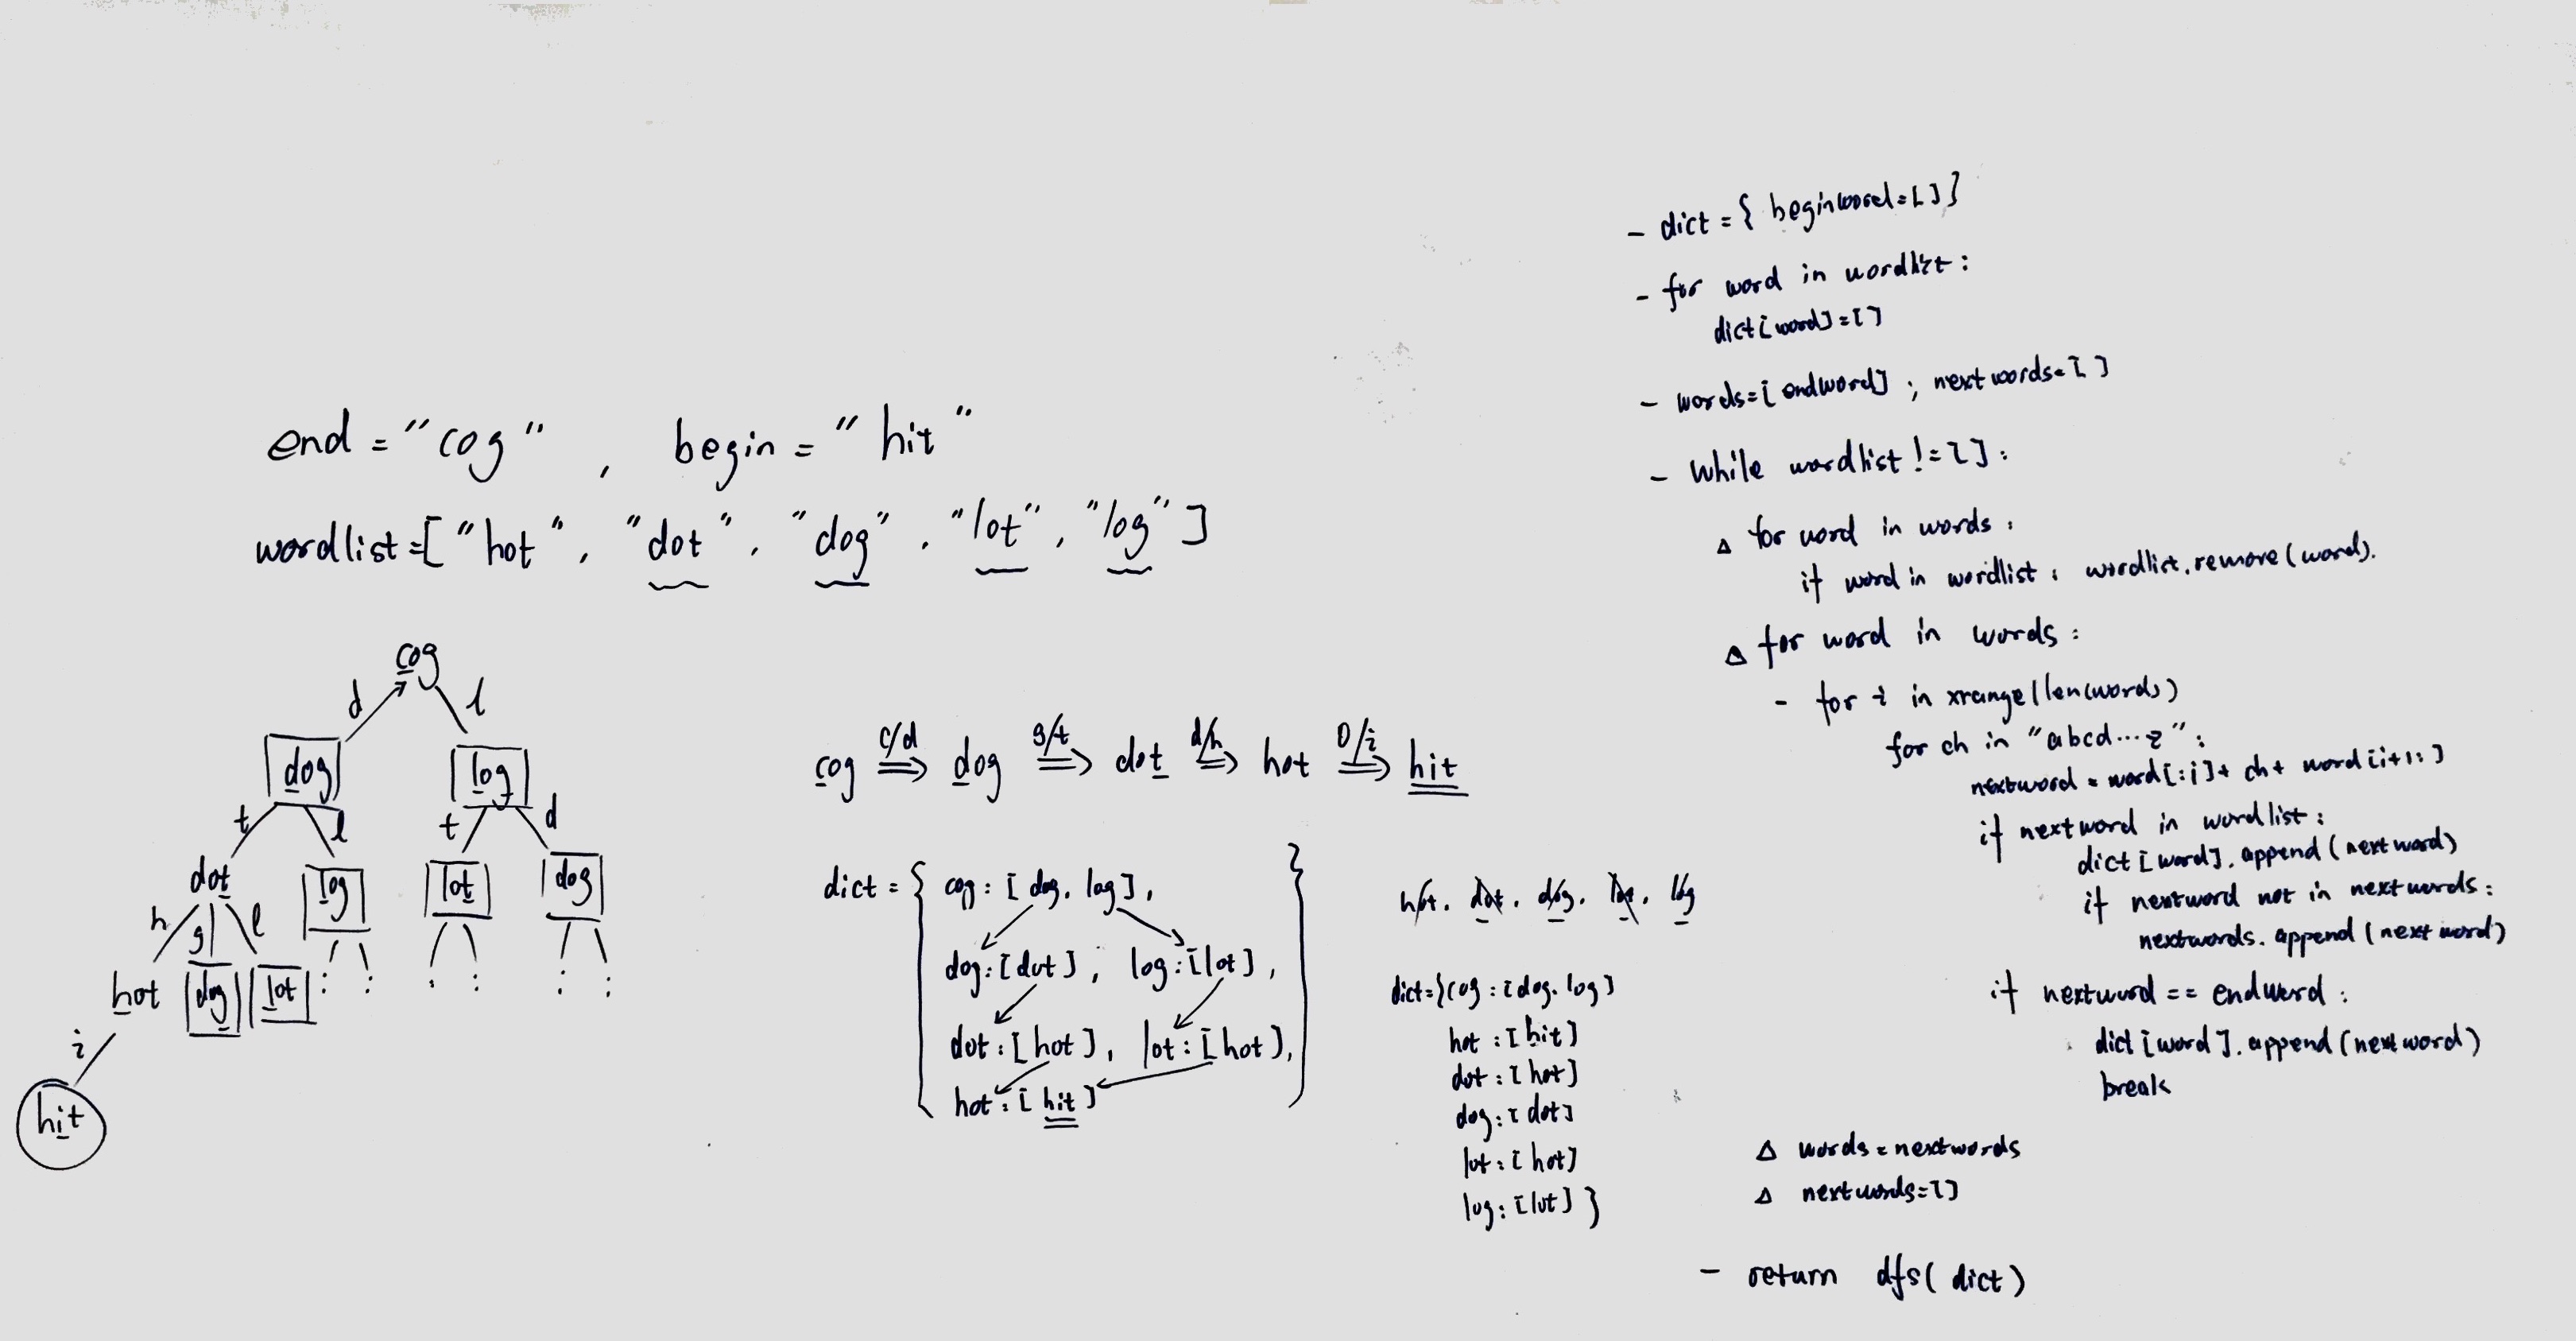 end = "cog" , begin = "hit"
wordlist = ["hot", "dot", "dog", "lot", "log"]
cog
d l
dog log
t l t d
dot log lot dog
h g l
hot dog lot
i
hit
c/d g/t d/h o/i
cog ⇒ dog ⇒ dot ⇒ hot ⇒ hit
dict = { cog : [ dog, log ],
dog : [dot] , log : [lot] ,
dot : [hot] , lot : [hot] ,
hot : [ hit ] }
hot. dot. dog. lot. log
dict = {cog : [dog. log]
hot : [hit]
dot : [hot]
dog : [dot]
lot : [hot]
log : [lot] }
- dict = { beginword = [ ] }
- for word in wordlist :
dict [word] = [ ]
- words = [ endword] ; nextwords = [ ]
- while wordlist != [ ] :
Δ for word in words :
if word in wordlist : wordlist.remove (word).
Δ for word in words :
- for i in xrange(len(words)
for ch in "abcd...z" :
nextword = word[:i] + ch + word [i+1:]
if nextword in wordlist :
dict [word]. append (nextword)
if nextword not in nextwords :
nextwords. append (nextword)
if nextword == endword :
dict [word]. append (nextword)
break
Δ words = nextwords
Δ nextwords = [ ]
- return dfs( dict )